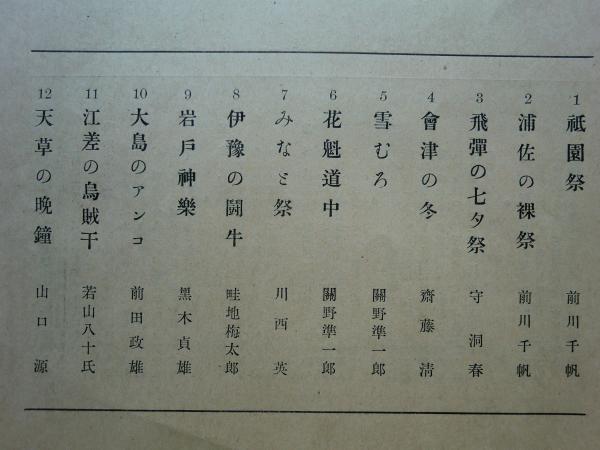 1 祇園祭 前川千帆
2 浦佐の裸祭 前川千帆
3 飛彈の七夕祭 守洞春
4 會津の冬 齋藤淸
5 雪むろ 關野準一郎
6 花魁道中 關野準一郎
7 みなと祭 川西英
8 伊豫の鬪牛 畦地梅太郎
9 岩戶神樂 黑木貞雄
10 大島のアンコ 前田政雄
11 江差の烏賊干 若山八十氏
12 天草の晩鐘 山口源